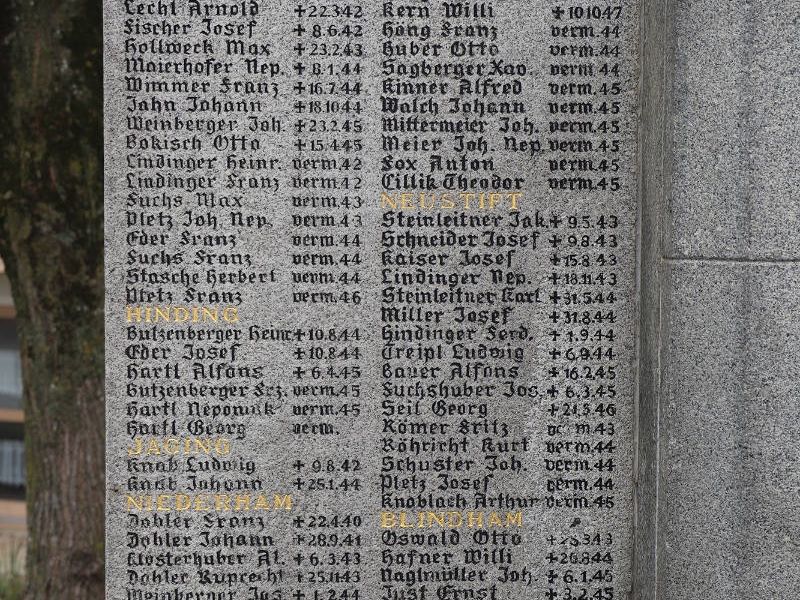 Lechl Arnold +22.3.42
Fischer Josef +8.6.42
Hollweck Max +23.2.43
Maierhofer Nep. +8.1.44
Wimmer Franz +16.7.44
Jahn Johann +18.10.44
Weinberger Joh. +23.2.45
Bokisch Otto +15.4.45
Lindinger Heinr. verm.42
Lindinger Franz verm.42
Fuchs Max verm.43
Pletz Joh. Nep. verm.43
Eder Franz verm.44
Fuchs Franz verm.44
Stasche Herbert verm.44
Pletz Franz verm.46
HINDING
Butzenberger Heinr. +10.8.44
Eder Josef +10.8.44
Hartl Alfons +6.4.45
Butzenberger Frz. verm.45
Hartl Nepomuk verm.45
Hartl Georg verm.
JAGING
Knab Ludwig +9.8.42
Knab Johann +25.1.44
NIEDERHAM
Dobler Franz +22.4.40
Dobler Johann +28.9.41
Klosterhuber Al. +6.3.43
Dobler Ruprecht +25.11.43
Weinberger Jos. +1.2.44
Kern Willi +10.10.47
Höng Franz verm.44
Huber Otto verm.44
Sagberger Xav. verm.44
Kinner Alfred verm.45
Walch Johann verm.45
Mittermeier Joh. verm.45
Meier Joh. Nep. verm.45
Fox Anton verm.45
Cillik Theodor verm.45
NEUSTIFT
Steinleitner Jak. +9.5.43
Schneider Josef +9.8.43
Kaiser Josef +15.8.43
Lindinger Nep. +18.11.43
Steinleitner Karl +31.5.44
Miller Josef +31.8.44
Hindinger Ferd. +1.9.44
Treipl Ludwig +6.9.44
Bauer Alfons +16.2.45
Fuchshuber Jos. +6.3.45
Seil Georg +21.5.46
Römer Fritz m.43
Röhricht Kurt verm.44
Schuster Joh. verm.44
Pletz Josef verm.44
Knobloch Arthur verm.45
BLINDHAM
Oswald Otto
Hafner Willi +20.8.44
Naglmüller Joh. +6.1.45
Just Ernst +3.2.45